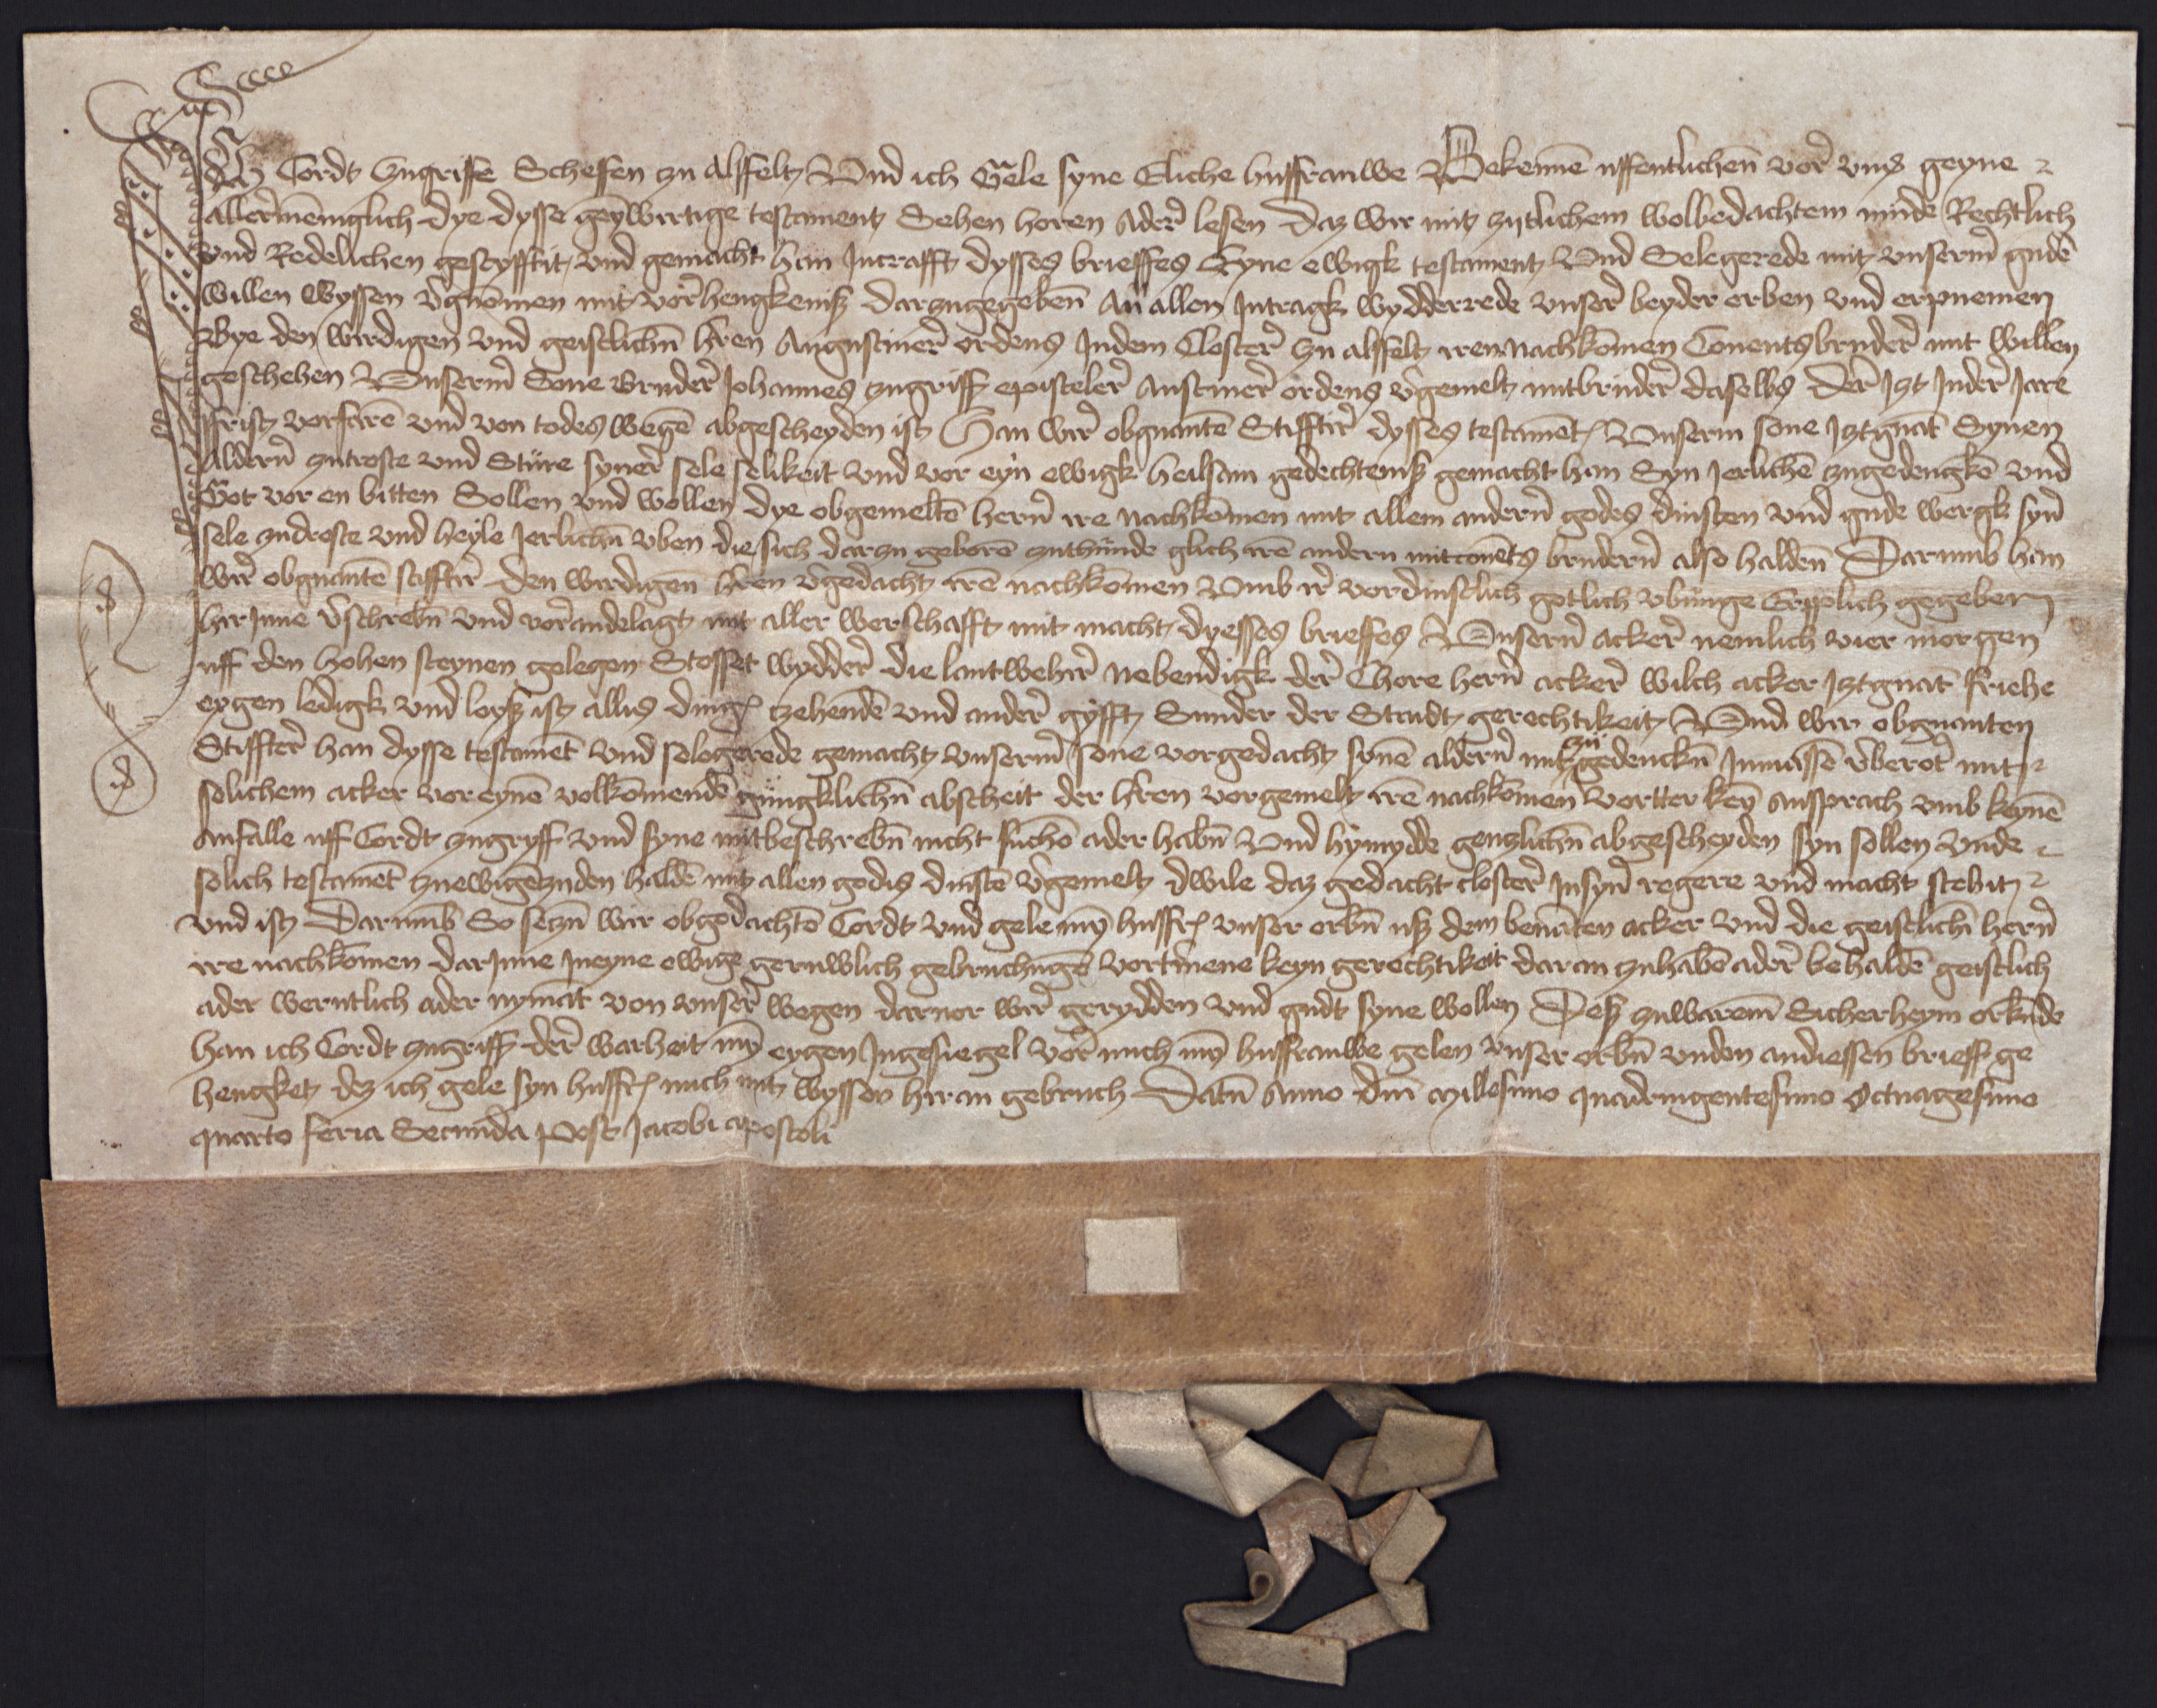 Ich Cordt Zugriffe Scheffen zu Alsfeltz Und ich Gele syne Eliche husfrauwe Bekennē uffentlichenn vor uns geyne
allermēniglich dye dysse geynwirtige testament Sehen horen Ader lesen Daz wir mit zijtlichem wolbedachtem mude Rechtlich
und Redelichen gestyfftit und gemacht han Incrafft dysses brieffes Eyne ewigk testament Und Selegerede mit unserm gudē
willen Wyssen vgnomen mit vorhengkeniß darzugegeben An allen Intragk wydderrede unser beyder erben und erpnemen
Bye den wirdigen und geistlichn hren Augustiner ordens Indem Closter zu alsfeltz iren nachkōmen Conuentsbruder mit willen
geschehen Unserm Sone Bruder Johannes zugriff epysteler Austiner ordens vgemelt mitbruder daselbs der Izt Inder Jare
ffrist vorfarē und von todes wegē abgescheyden ist Han wir obgnantē Stiffter dysses testamēt Unserm sone Iztgnāt Synen
Aldern zutroste und Sture syner sele selikeit und vor eyn ewigk heilsam gedechteniß gemacht han Syn Jerlichē zugedengkē und
Got vor en bitten Sollen und wollen dye obgemeltē hern ire nachkōmen mit allem andern godes dinsten und gude wergk syn
sele zudroste und heyle Jerlichn uben die sich darzu geborē zuthunde glich irē andern mitconēts brudern also haldenn Darumb han
wir obgnantē stiffter den wirdigen hren vgedacht irē nachkōmen Umb ir vordinstlich gotlich ubunge Erpplich gegeben
hir Inne vschrebn und vorandelagt mit aller werschafft mit macht dysses brieffes Unsern acker nemlich vier morgen
uff den hohen steynen gelegen Stosset wydder die lantwehir Nebendigk der Chore hern acker wilch acker Iztgnāt friehe
eygen ledigk und loyß ist allis dinges zehendē und ander gyfft Sunder der Stadt gerechtikeit Und wir obgnanten
Stiffter han dysse testamēt und selegerede gemacht unserm sone vorgedacht synē aldern mit zu gedenckn Inmassē vberot mit
solichem acker vor eynē volkōmendē gungklichn abscheit der hren vorgemelt irē nachkōmen vortter keyn Ansprach umb keynē
Anfalle uff Cordt zugryff und syne mitbeschrebn nicht suchē ader habn Und hymydde genzlichn abgescheyden syn sollen Unde
solich testamēt zuewigēzyden haldē mit allen godis dinstē vgemelt dwile daz gedacht closter Insyn regere und macht stehit
und ist Darumb So sezn wir obgedachtē Cordt und gele myn husfr unser erbn uß dem benātē acker und die geistlichn hern
ire nachkōmen dar Inne Ineyne ewige geruwlich gebruchugē vortmene keyn gerechtikeit daran zuhabē ader behaldē geistlich
ader werntlich ader nymāt von unser wegen darvor wir gerydden und gudt syne wollen Deß zuwarem Sicherheym orkūde
han ich Cordt zugriff der warheit myn eygen Ingesiegel vor mich myn husfrauwe gelen unser erbn unden andiessen brieff ge
hengket dez ich gele syn husfr mich mit wyssen hiran gebruch Datū Anno dni millesimo quadringentesimo Octuagesimo
quarto feria Secunda post Jacobi apostoli